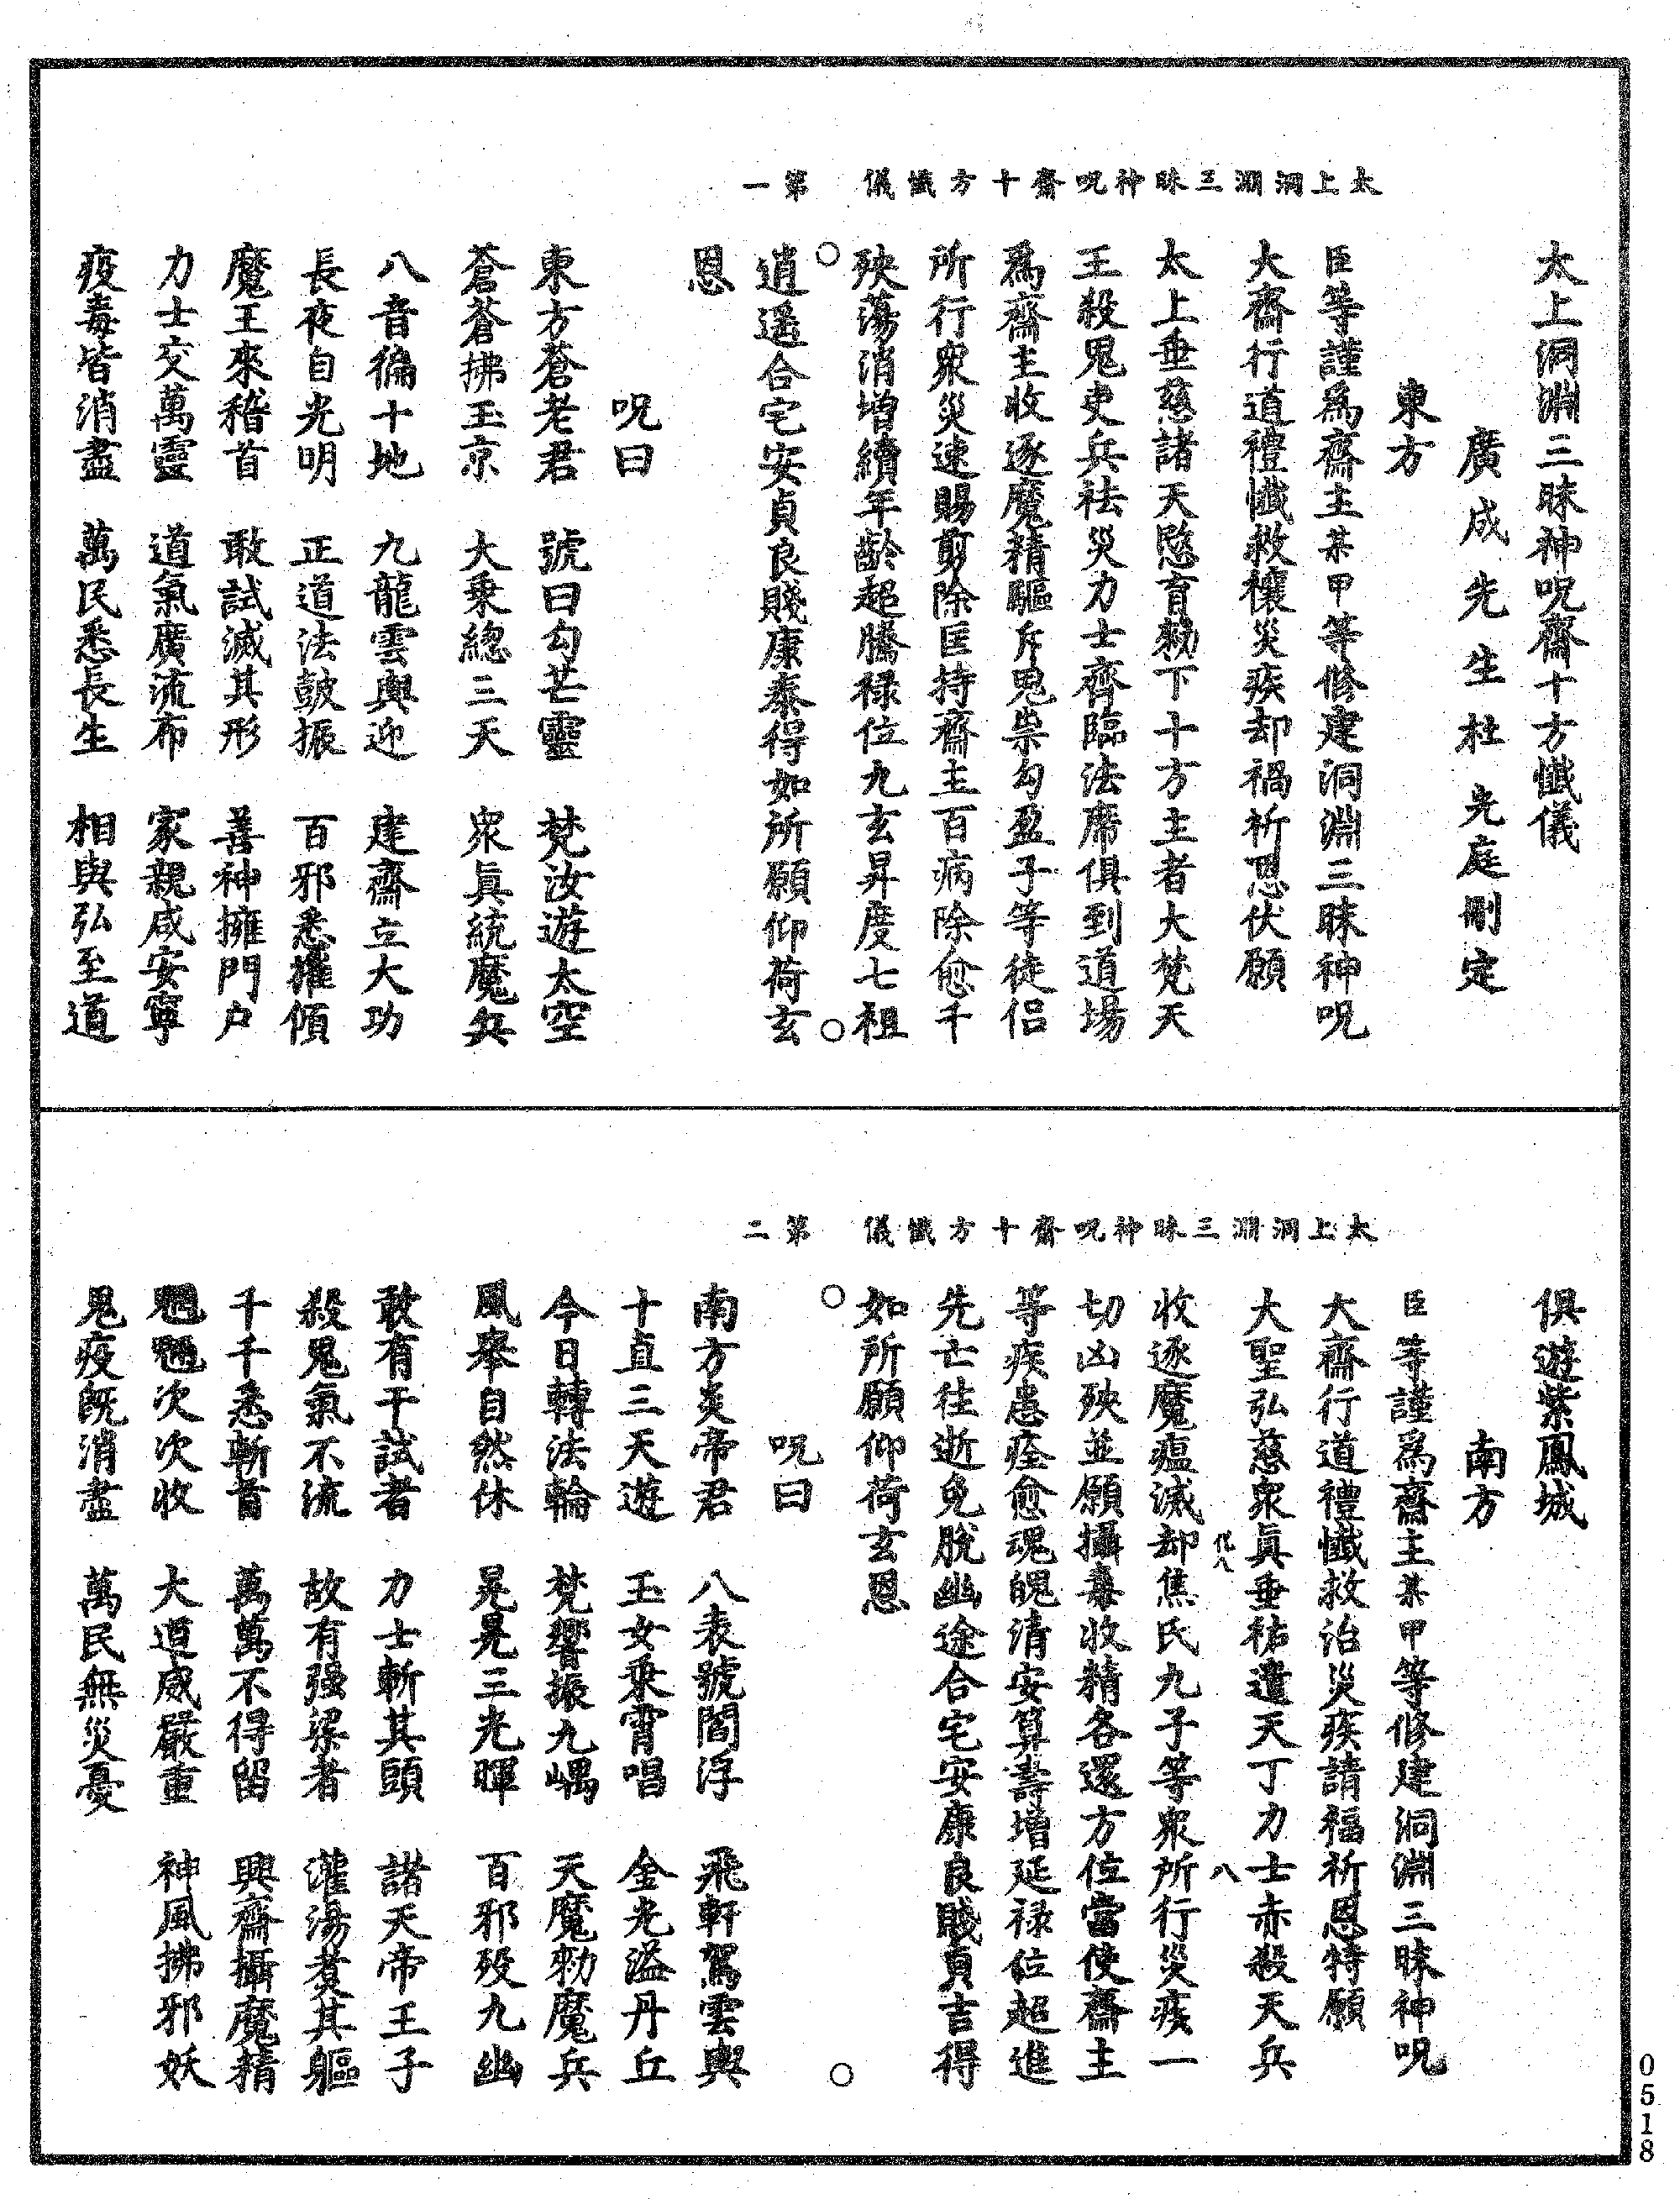 太上洞淵三昧神呪齋十方懺儀　第一
太上洞淵三昧神呪齋十方懺儀
廣成先生杜光庭刪定
東方
臣等謹爲齋主某甲等修建洞淵三昧神呪
大齋行道禮懺救禳災疾却禍祈恩伏願
太上垂慈諸天愍育勑下十方主者大梵天
王殺鬼吏兵袪災力士齊臨法席俱到道場
爲齋主收逐魔精驅斥鬼祟勾盈子等徒侣
所行衆災速賜剪除匡持齋主百病除愈千
殃蕩消增續年齡超騰禄位九玄昇度七祖
逍遥合宅安貞良賤康泰得如所願仰荷玄
恩
呪曰
東方蒼老君　號曰勾芒靈　梵汝遊太空
蒼蒼拂玉京　大乘總三天　衆眞統魔兵
八音徧十地　九龍雲輿迎　建齋立大功
長夜自光明　正道法鼓振　百邪悉摧傾
魔王來稽首　敢試滅其形　善神擁門户
力士交萬靈　道氣廣流布　家親咸安寧
疫毒皆消盡　萬民悉長生　相與弘至道
太上洞淵三昧神呪齋十方懺儀　第二
俱遊紫鳳城
南方
臣等謹爲齋主某甲等修建洞淵三昧神呪
大齋行道禮懺救治災疾請福祈恩特願
大聖弘慈衆眞垂祐遣天丁力士赤殺天兵
八
收逐魔瘟滅却焦氏九子等衆所行災疾一
切凶殃並願攝毒收精各還方位當使齋主
等疾患痊愈魂魄清安算壽增延禄位超進
先亡往逝免脫幽途合宅安康良賤貞吉得
如所願仰荷玄恩
呪曰
南方炎帝君　八表號閻浮　飛軒駕雲輿
十直三天遊　玉女乘霄唱　金光溢丹丘
今日轉法輪　梵響振九嵎　天魔勑魔兵
風舉自然休　晃晃三光暉　百邪殁九幽
敢有干試者　力士斬其頭　諾天帝王子
殺鬼氣不流　故有强梁者　灌湯煑其軀
千千悉斬首　萬萬不得留　興齋攝魔精
魍魎次次收　大道威嚴重　神風拂邪妖
鬼疫旣消盡　萬民無災憂
0518